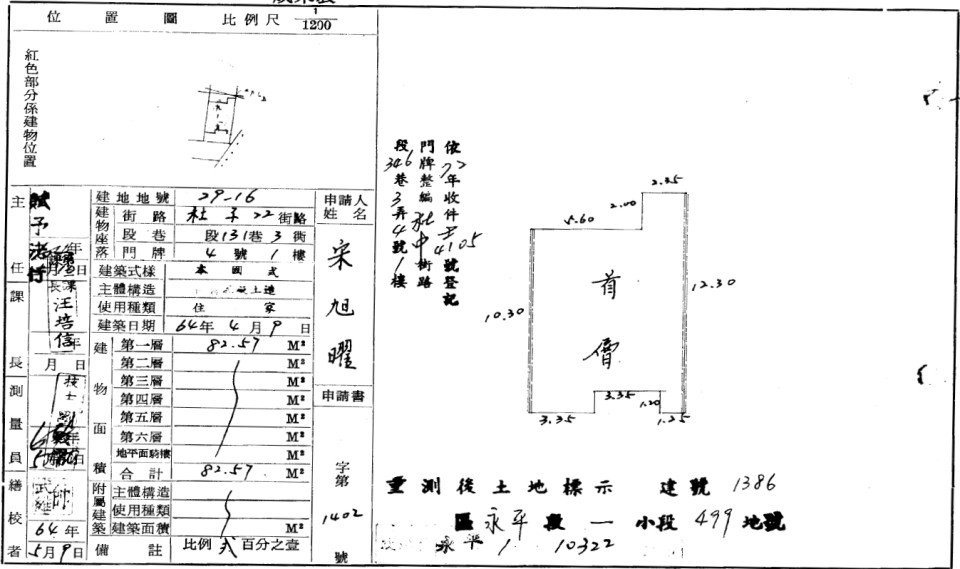 位置圖 比例尺 1/1200
紅色部分係建物位置
建地地號 29-16
建物座落
街路 社子22街路
段巷 段131巷3衖
門牌 4號1樓
建築式樣 本國式
主體構造 土造
使用種類 住家
建築日期 64年4月9日
建物面積
第一層 82.57 M²
第二層 M²
第三層 M²
第四層 M²
第五層 M²
第六層 M²
地平面騎樓 M²
合計 82.57 M²
附屬建築
主體構造
使用種類
建築面積 M²
備註 比例 弍百分之壹
申請人姓名
宋旭曜
申請書
字第
1402
號
主任
課長
汪培信
年
月 日
測量員
技士
繕校者
64年
5月9日
依72年收件字4105號登記
門牌整編社中街路
段346巷3弄4號1樓
2.45
2.00
5.60
10.30
12.30
3.35
1.20
3.35
1.25
重測後土地標示 建號 1386
區永平段一小段499地號
永平 1 10322